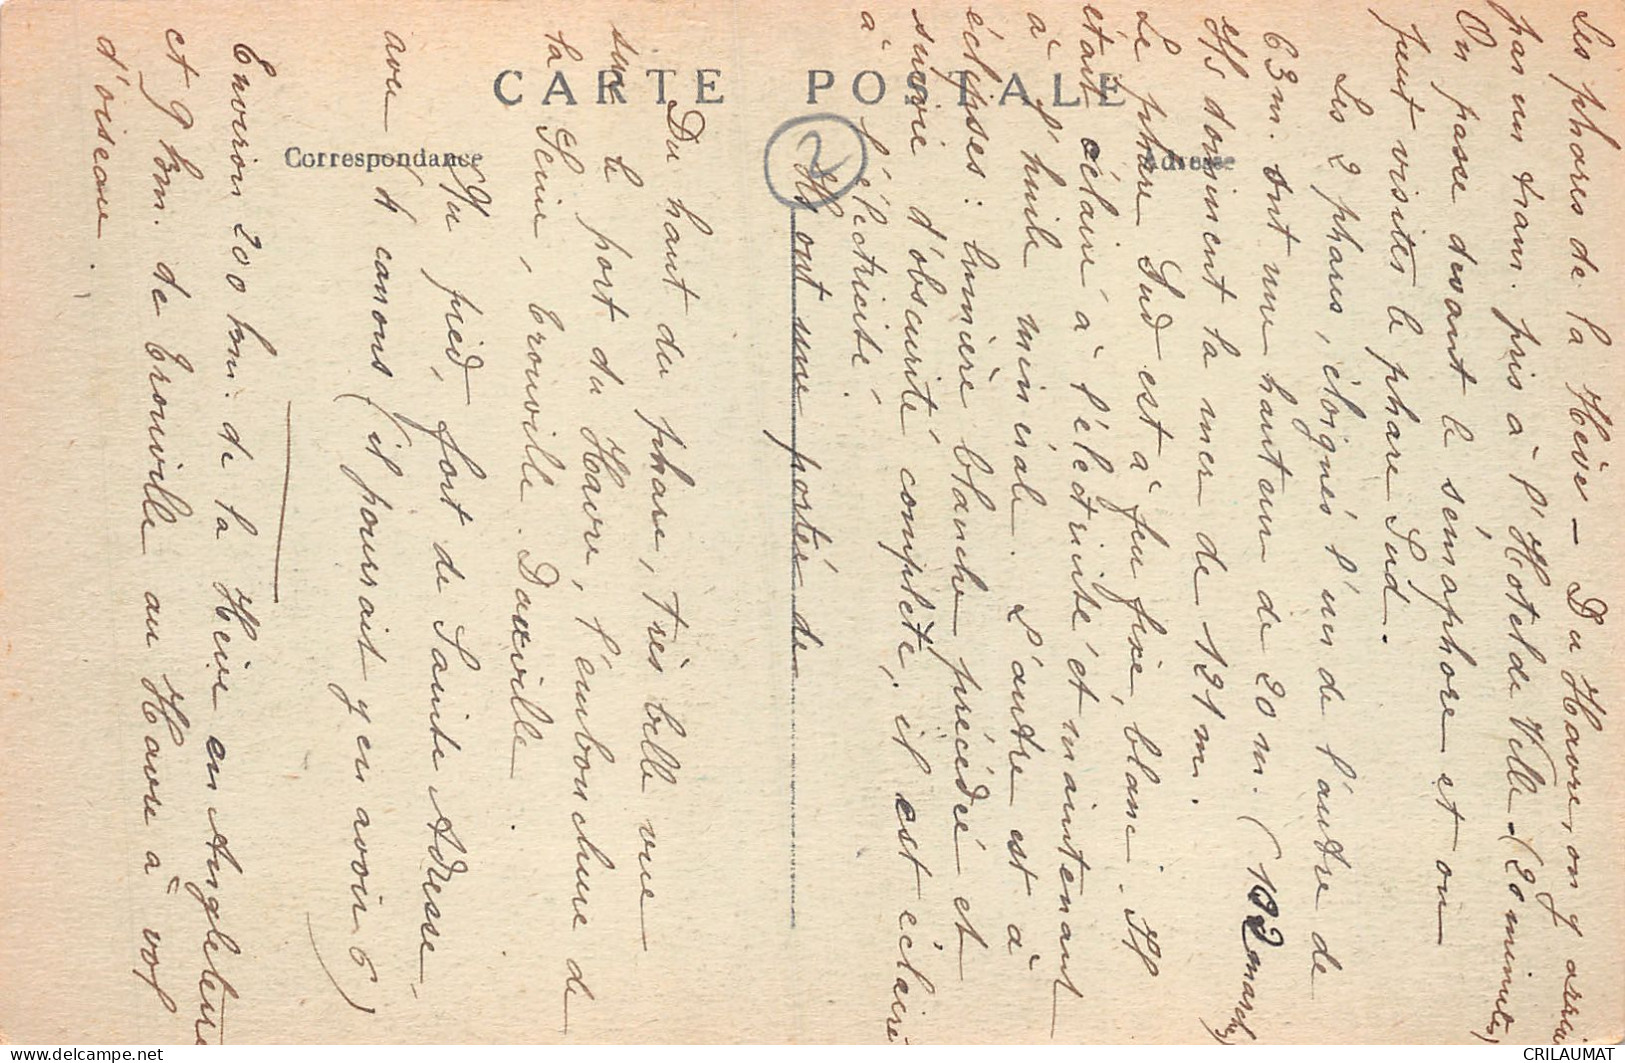 CARTE POSTALE
Correspondance
Adresse
2
Les phares de la Hève - Du Havre, on y arrive
par un tram. pris à l'Hotel de Ville - (20 minutes)
On passe devant le sémaphore et on
peut visiter le phare Sud.
Les 2 phares, éloignés l'un de l'autre de
63 m. ont une hauteur de 20 m. (102 marches)
Ils dominent la mer de 121 m.
Le phare Sud est à feu fixe, blanc. Il
était éclairé à l'électricité et maintenant
à l'huile minérale. L'autre est à
éclypses: lumière blanche précédée et
suivie d'obscurité complète, il est éclairé
à l'électricité.
Ils ont une portée de
Du haut du phare, très belle vue
sur le port du Havre, l'embouchure de
la Seine, Trouville. Dauville.
Au pied, fort de Sainte Adresse,
avec 4 canons (il pourrait y en avoir 6)
Environ 200 km. de la Hève en Angleterre
et 9 km. de Trouville au Havre à vol
d'oiseau.
CRILAUMAT